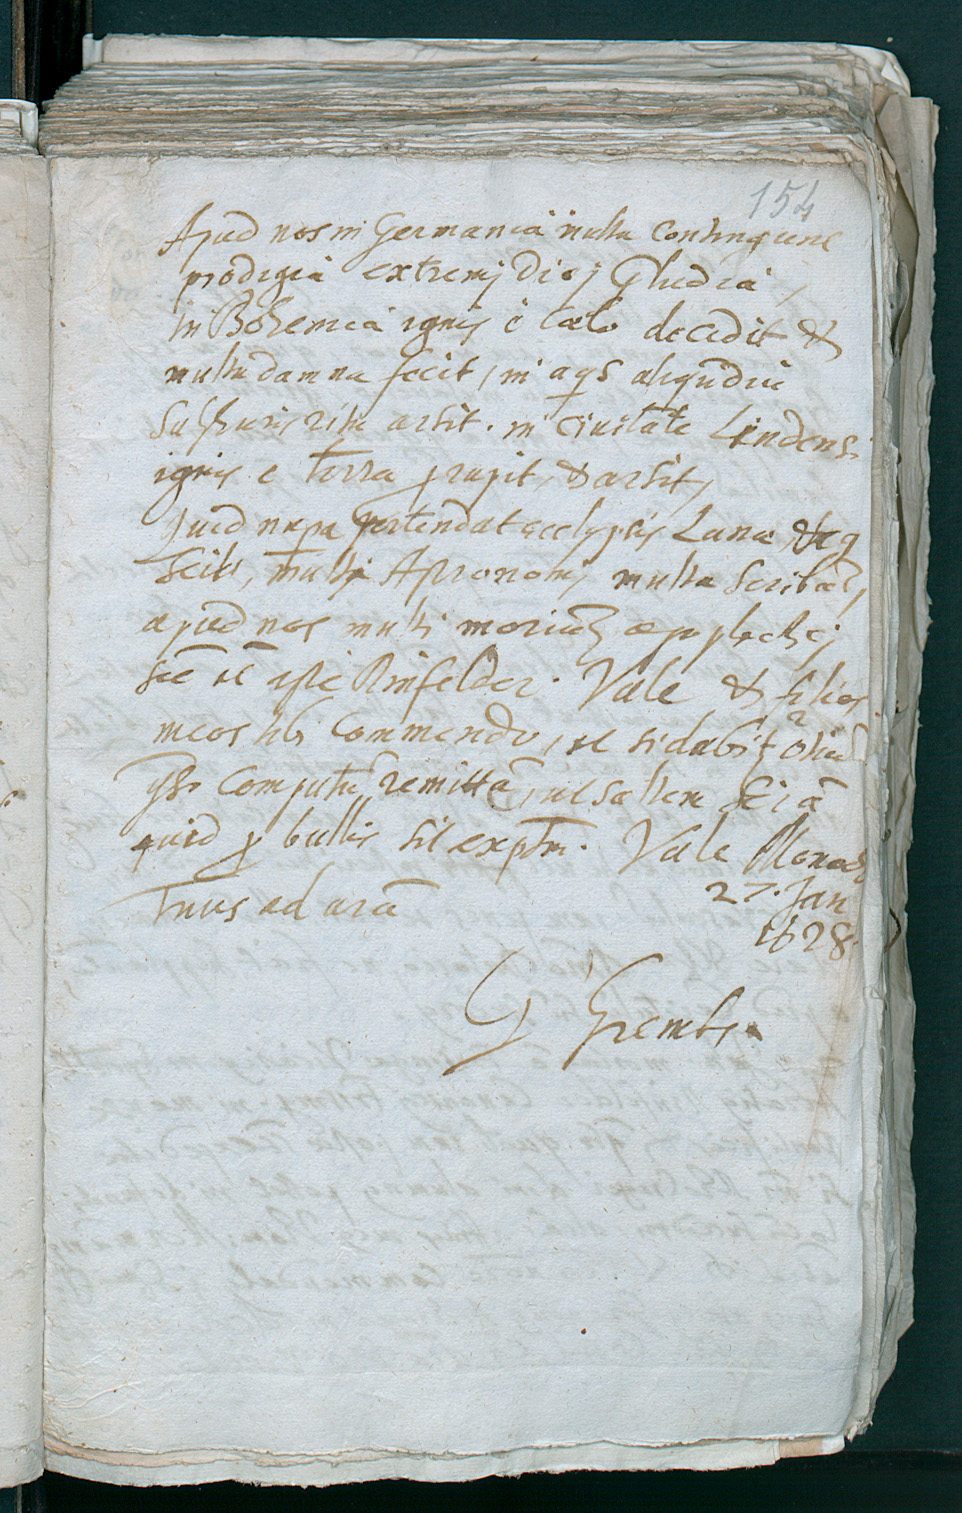 154
Apud nos in Germania multa contingunt
prodigia extremi Diei
in Bohemia ignis è caelo decidit &
multa damna fecit, in aqs aliqudiu
Sulphuris ritu arsit. in Civitate Lindensi
ignis e terra prupit, & arsit,
Quid nupa portendat ecclypsis Lunae
scitis, multi Astronomi multa scribãt,
apud nos multi moriunt apoplectici,
sic et ipse Rinfelder. Vale & filios
meos tibi Commendo, et si dabit otiũ
ipse Computũ remittã, vel saltem sciã
quid p bullis sit exptm. Vale Monac
27. Jan
Tuus ad arã
1628.
G Grembs